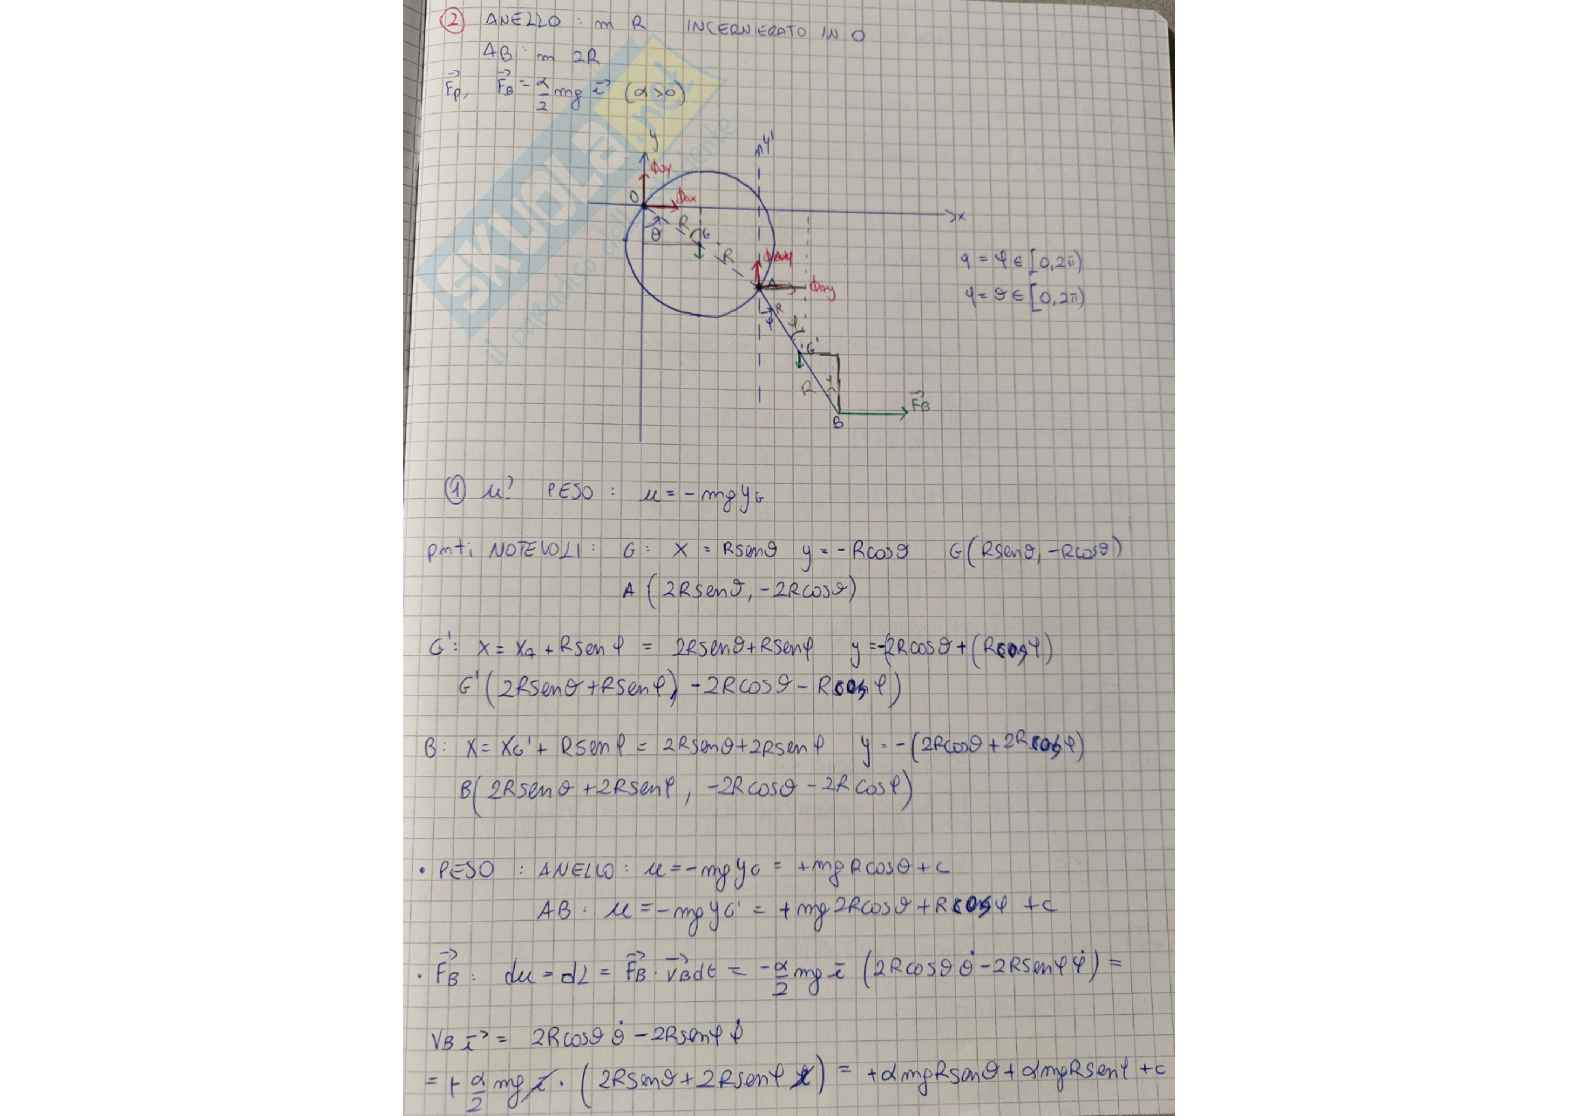 ② ANELLO : m R INCERNIERATO IN O
AB : m 2R
F⃗p, F⃗B = α/2 mg i⃗ (α>0)
SKUOLA.net
y
y'
Φoy
O
Φox
x
R
θ
G
R
ΦAy
A
Φay
q = φ ∈ [0,2π)
q = ϑ ∈ [0,2π)
R
φ
G'
R
B
F⃗B
① u? PESO : u = -mgyG
pnti NOTEVOLI : G: x = Rsenϑ y = -Rcosϑ G(Rsenϑ, -Rcosϑ)
A (2Rsenϑ, -2Rcosϑ)
G': x = xA + Rsenφ = 2Rsenϑ+Rsenφ y = -2Rcosϑ + (Rcosφ)
G'(2Rsenϑ+Rsenφ, -2Rcosϑ - Rcosφ)
B: x = xG' + Rsenφ = 2Rsenϑ+2Rsenφ y = -(2Rcosϑ + 2Rcosφ)
B(2Rsenϑ + 2Rsenφ, -2Rcosϑ - 2Rcosφ)
• PESO : ANELLO : u = -mgyG = +mgRcosϑ + c
AB : u = -mgyG' = +mg2Rcosϑ + Rcosφ + c
• F⃗B : du = dL = F⃗B · v⃗B dt = -α/2 mg i⃗ (2Rcosϑ ϑ̇ - 2Rsenφ φ̇) =
vB i⃗ = 2Rcosϑ ϑ̇ - 2Rsenφ φ̇
= + α/2 mg i · (2Rsenϑ + 2Rsenφ) = +αmgRsenϑ + αmgRsenφ + c